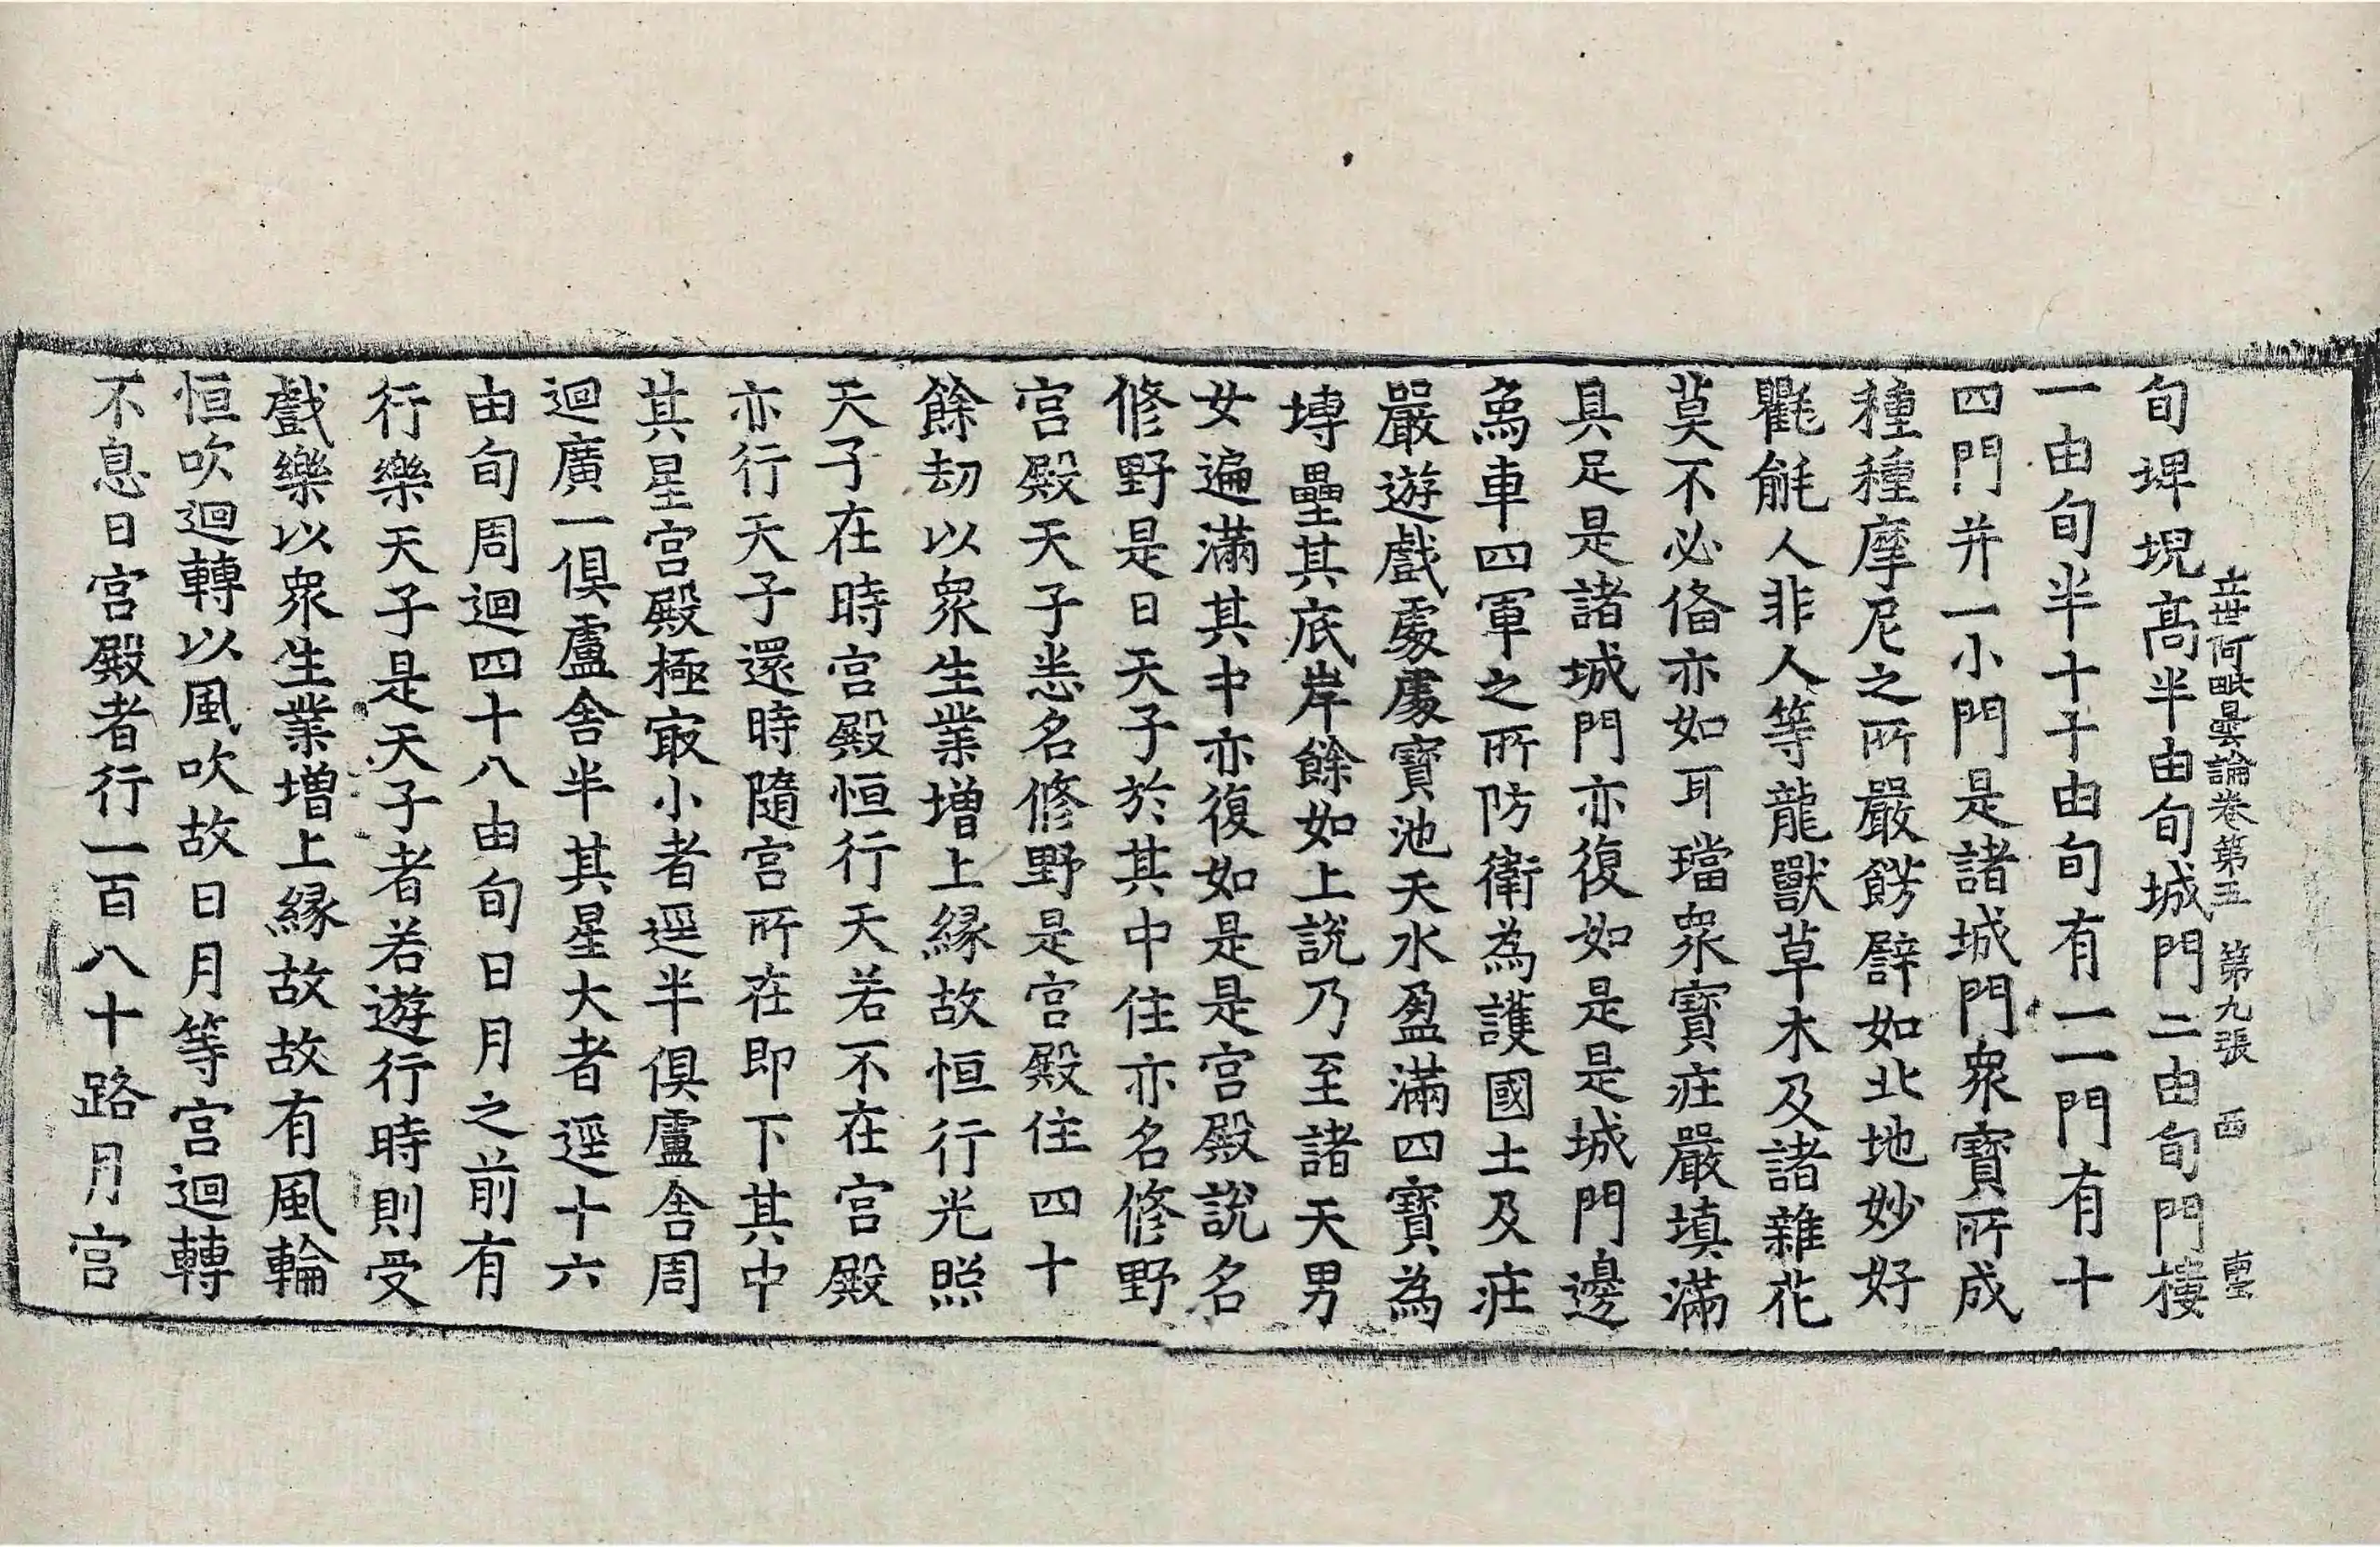 立世阿毗曇論卷第五 第九張 西
旬埤堄高半由旬城門二由旬門樓
一由旬半十十由旬有一一門有十
四門并一小門是諸城門衆寶所成
種種摩尼之所嚴餝譬如北地妙好
氍毹人非人等龍獸草木及諸雜花
莫不必俻亦如耳璫衆寶莊嚴填滿
具足是諸城門亦復如是是城門邊
象車四軍之所防衛為護國土及莊
嚴遊戲處處寶池天水盈滿四寶為
塼壘其底岸餘如上說乃至諸天男
女遍滿其中亦復如是是宮殿說名
修野是日天子於其中住亦名修野
宮殿天子悉名修野是宮殿住四十
餘劫以衆生業增上緣故恒行光照
天子在時宮殿恒行天若不在宮殿
亦行天子還時隨宮所在即下其中
其星宮殿極㝡小者逕半俱盧舍周
迴廣一俱盧舍半其星大者逕十六
由旬周迴四十八由旬日月之前有
行樂天子是天子者若遊行時則受
戲樂以衆生業增上緣故故有風輪
恒吹迴轉以風吹故日月等宮迴轉
不息日宮殿者行一百八十路月宮